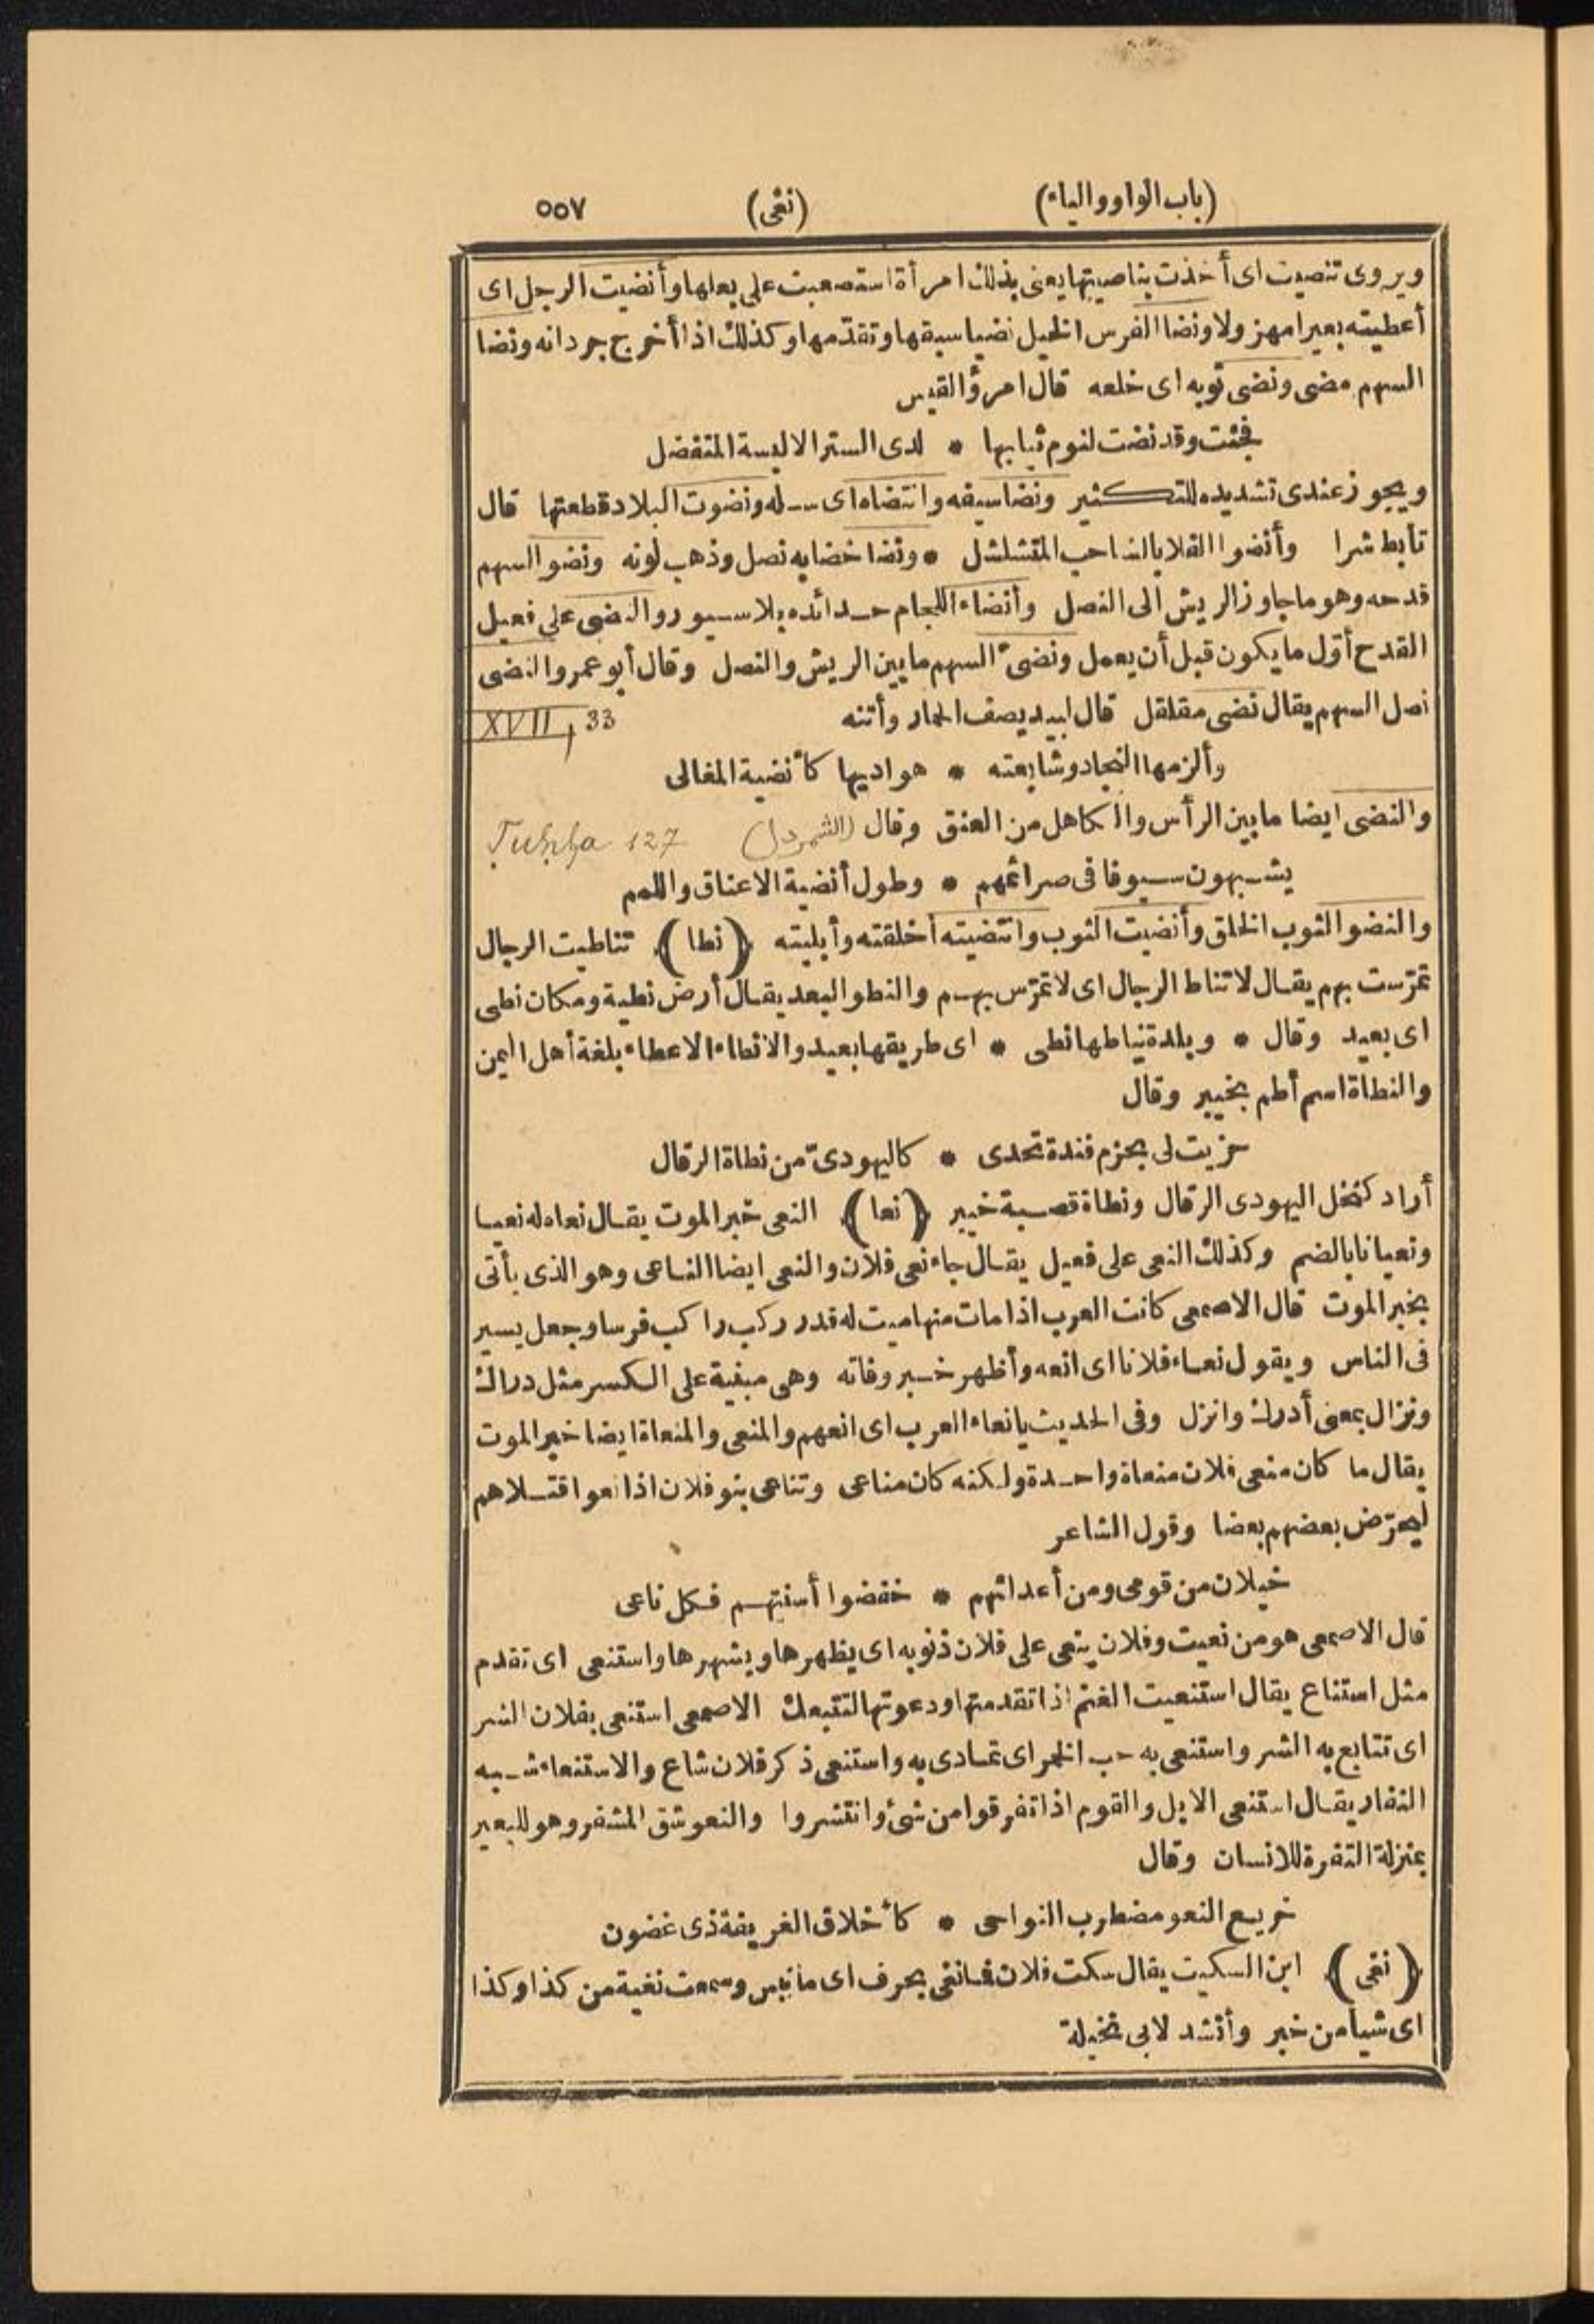 (باب الواو والياء) (نغى) ٥٥٧
ويروى تنصيت اى أخذت بناصيتها يعنى بذلك امرأة استصعبت على بعلها وأنضيت الرجل اى
أعطيته بعيرا مهزولا ونضا الفرس الخيل نضيا سبقها وتقدّمها وكذلك اذا أخرج جردانه ونضا
السهم مضى ونضى ثوبه اى خلعه قال امرؤ القيس
فجئت وقد نضت لنوم ثيابها * لدى الستر الا لبسة المتفضل
ويجوز عندى تشديده للتكثير ونضا سيفه وانتضاه اى سله ونضوت البلاد قطعتها قال
تأبط شرا وأنضوا الفلا بالشاحب المتشلشل * ونضا خضابه نصل وذهب لونه ونضو السهم
قدحه وهو ما جاوز الريش الى النصل وأنضاء اللجام حدائده بلا سيور والنضى على فعيل
القدح أوّل ما يكون قبل أن يعمل ونضىّ السهم ما بين الريش والنصل وقال أبو عمرو النضى
نصل السهم يقال نضى مقلقل قال لبيد يصف الحمار وأتنه XVII, 33
وألزمها النجاد وشايعته * هواديها كأنضية المغالى
والنضى ايضا ما بين الرأس والكاهل من العنق وقال (الشمردل) Tuḥfa 127
يشبهون سيوفا فى صرائمهم * وطول أنضية الاعناق واللمم
والنضو الثوب الخلق وأنضيت الثوب وانتضيته أخلقته وأبليته (نطا) تناطيت الرجال
تمرّست بهم يقال لا تناط الرجال اى لا تمرّس بهم والنطو البعد يقال أرض نطية ومكان نطى
اى بعيد وقال * وبلدة نياطها نطى * اى طريقها بعيد والانطاء الاعطاء بلغة أهل اليمن
والنطاة اسم أطم بخيبر وقال
حزيت لى بحزم فندة تحدى * كاليهودىّ من نطاة الرقال
أراد كنخل اليهودى الرقال ونطاة قصبة خيبر (نعا) النعى خبر الموت يقال نعاه له نعيا
ونعيانا بالضم وكذلك النعى على فعيل يقال جاء نعى فلان والنعى ايضا الناعى وهو الذى يأتى
بخبر الموت قال الاصمعى كانت العرب اذا مات منها ميت له قدر ركب راكب فرسا وجعل يسير
فى الناس ويقول نعاء فلانا اى انعه وأظهر خبر وفاته وهى مبنية على الكسر مثل دراك
ونزال بمعنى أدرك وانزل وفى الحديث يا نعاء العرب اى انعهم والمنعى والمنعاة ايضا خبر الموت
يقال ما كان منعى فلان منعاة واحدة ولكنه كان مناعى وتناعى بنو فلان اذا نعوا قتلاهم
ليحرّض بعضهم بعضا وقول الشاعر
خيلان من قومى ومن أعدائهم * خفضوا أسنتهم فكل ناعى
قال الاصمعى هو من نعيت وفلان ينعى على فلان ذنوبه اى يظهرها ويشهرها واستنعى اى تقدم
مثل استناع يقال استنعيت الغنم اذا تقدمتها ودعوتها لتتبعك الاصمعى استنعى بفلان الشر
اى تتابع به الشر واستنعى به حب الخمر اى تمادى به واستنعى ذكر فلان شاع والاستنعاء شبه
النفار يقال استنعى الابل والقوم اذا تفرقوا من شئ وانتشروا والنعو شق المشفر وهو للبعير
بمنزلة التفرة للانسان وقال
خريع النعو مضطرب النواحى * كأخلاق الغريفة ذى غضون
(نغى) ابن السكيت يقال سكت فلان فما نغى بحرف اى ما نبس وسمعت نغية من كذا وكذا
اى شيأ من خبر وأنشد لابى نخيلة